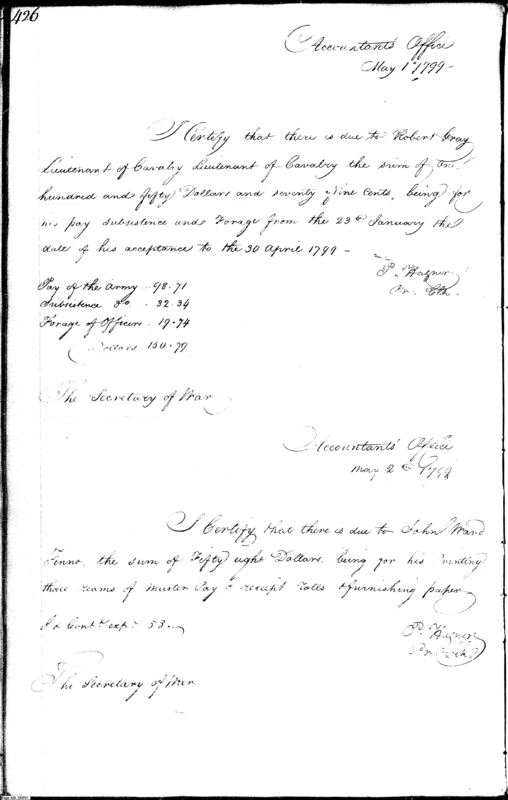 426
Accountants' Office
May 1st 1799 -
I Certify that there is due to Robert Gray
Lieutenant of Cavalry Lieutenant of Cavalry the sum of one
hundred and fifty Dollars and seventy Nine Cents, being for
his pay subsistence and Forage from the 23d January the
date of his acceptance to the 30 April 1799 -
P. Hagner
Pr. Clk.
Pay of the army .. 98.71
Subsistence Do . 32.34
Forage of Officers .. 19.74
Dollars 150.79
The Secretary of War
Accountants' Office
May 2nd 1799
I Certify that there is due to John Ward
Fenno, the sum of Fifty eight Dollars, being for his printing
three reams of Muster Pay & receipt rolls & furnishing paper
Contt. exps 58.
P. Hagner
Pr. Clk.
The Secretary of War